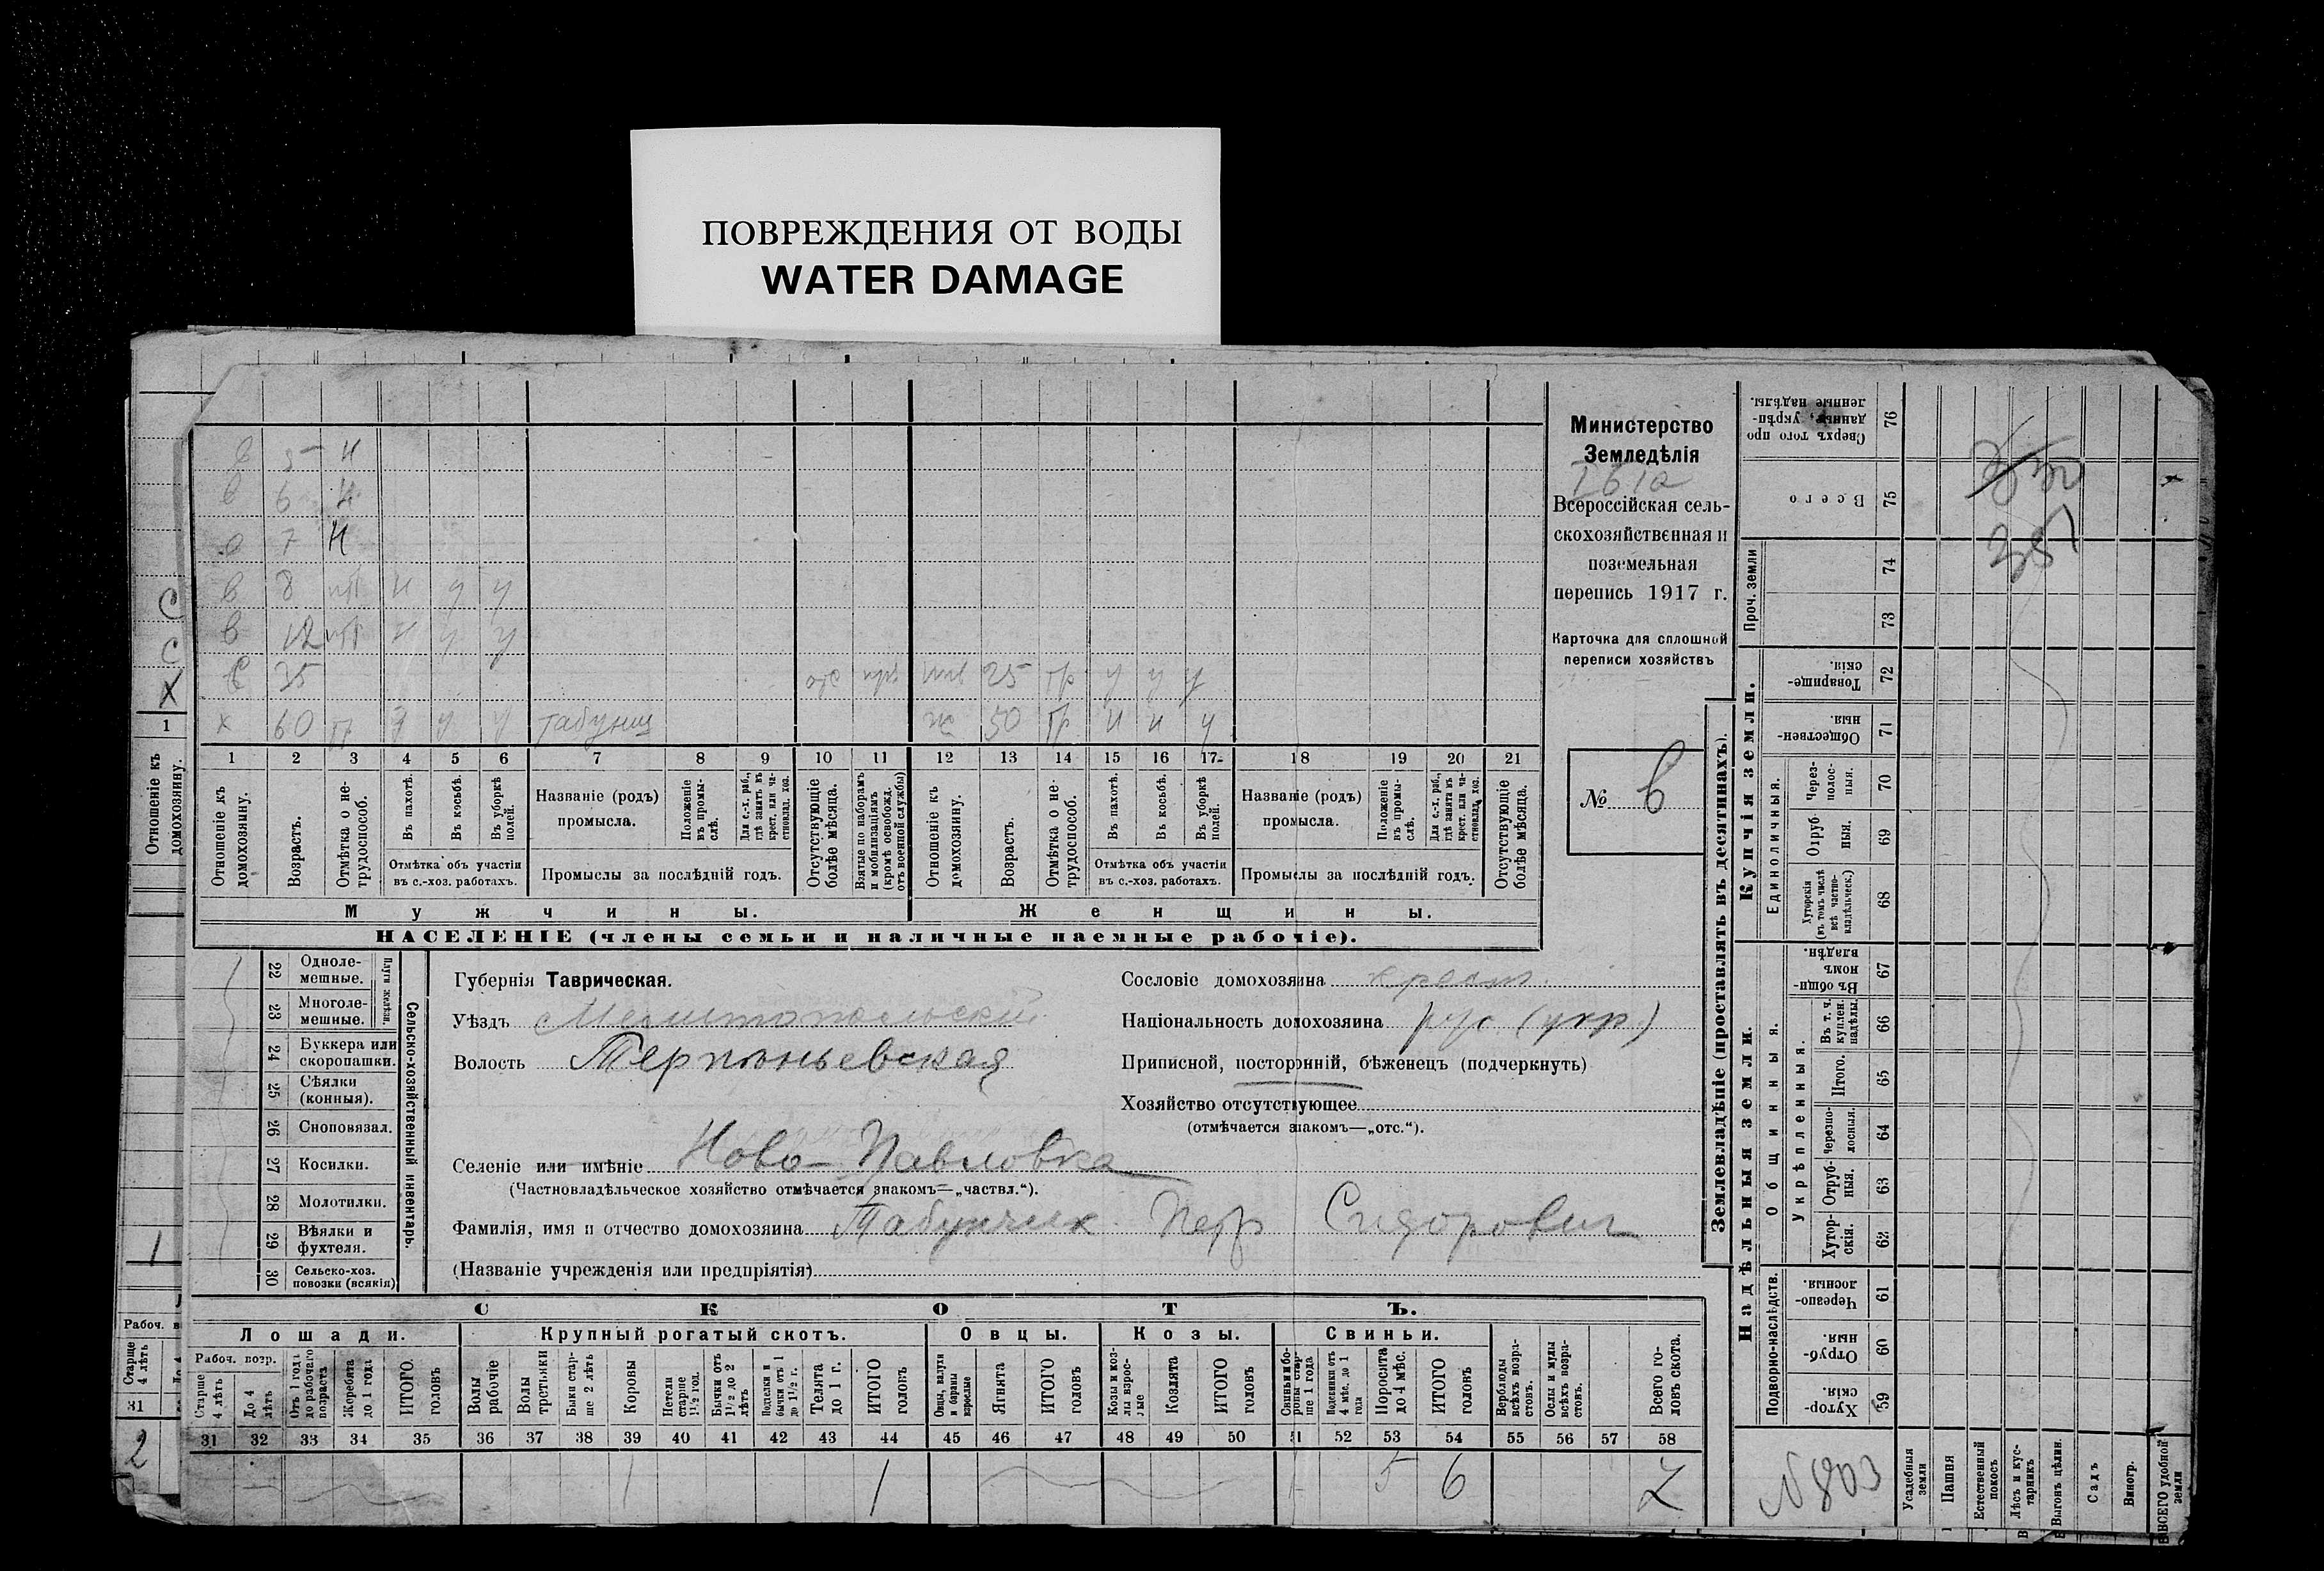 ПОВРЕЖДЕНИЯ ОТ ВОДЫ
WATER DAMAGE
5 н
в 6 н
7 н
в 8 н у у
в 12 н у у
с 35 отс 25 гр у у у
х 60 гр у у табунщ ж 50 гр н н у
1 2 3 4 5 6 7 8 9 10 11 12 13 14 15 16 17 18 19 20 21
Отношеніе къ домохозяину.
Возрастъ.
Отмѣтка о нетрудоспособ.
Въ пахотѣ.
Въ косьбѣ.
Въ уборкѣ полей.
Отмѣтка объ участіи въ с.-хоз. работахъ.
Названіе (родъ) промысла.
Положеніе въ промыслѣ.
Для с.-х. раб., гдѣ занятъ въ крест. или частновлад. хоз.
Промыслы за послѣдній годъ.
Отсутствующіе болѣе мѣсяца.
Взятые по наборамъ и мобилизаціямъ (кромѣ освобожд. отъ военной службы)
Отношеніе къ домохозяину.
Возрастъ.
Отмѣтка о нетрудоспособ.
Въ пахотѣ.
Въ косьбѣ.
Въ уборкѣ полей.
Отмѣтка объ участіи въ с.-хоз. работахъ.
Названіе (родъ) промысла.
Положеніе въ промыслѣ.
Для с.-х. раб., гдѣ занята въ крест. или частновлад. хоз.
Промыслы за послѣдній годъ.
Отсутствующіе болѣе мѣсяца.
Мужчины.
Женщины.
НАСЕЛЕНІЕ (члены семьи и наличные наемные рабочіе).
Министерство
Земледѣлія
Всероссійская сель-
скохозяйственная и
поземельная
перепись 1917 г.
Карточка для сплошной
переписи хозяйствъ
№ 6
С
С
Х
1
Отношеніе къ домохозяину.
1
Рабоч. в
Старше 4 лѣтъ
31
2
22 Однолемешные.
23 Многолемешные.
Плуги желѣзн.
24 Буккера или скоропашки.
25 Сѣялки (конныя).
26 Сноповязал.
27 Косилки.
28 Молотилки.
29 Вѣялки и фухтеля.
30 Сельско-хоз. повозки (всякія)
Сельско-хозяйственный инвентарь.
Губернія Таврическая.
Уѣздъ Мелитопольскій
Волость Терпѣньевская
Селеніе или имѣніе Ново-Павловка
(Частновладѣльческое хозяйство отмѣчается знакомъ—„частвл.“).
Фамилія, имя и отчество домохозяина Табунчик Петр Сидорович
(Названіе учрежденія или предпріятія)
Сословіе домохозяина крест.
Національность домохозяина рус (укр.)
Приписной, посторонній, бѣженецъ (подчеркнуть)
Хозяйство отсутствующее
(отмѣчается знакомъ—„отс.“).
СКОТЪ.
Лошади.
Крупный рогатый скотъ.
Овцы.
Козы.
Свиньи.
Рабоч. возр.
Старше 4 лѣтъ
До 4 лѣтъ
Отъ 1 года до рабочаго возраста
Жеребята до 1 года
ИТОГО головъ
Волы рабочіе
Волы третьяки
Быки старше 2 лѣтъ
Коровы
Нетели старше 1½ год.
Бычки отъ 1½ до 2 лѣтъ
Подтелки и бычки отъ 1 до 1½ г.
Телята до 1 г.
ИТОГО головъ
Овцы, валухи и бараны взрослые
Ягнята
ИТОГО головъ
Козы и козлы взрослые
Козлята
ИТОГО головъ
Свиньи и боровы старше 1 года
Подсвинки отъ 4 мѣс. до 1 года
Поросята до 4 мѣс.
ИТОГО головъ
Верблюды всѣхъ возрастовъ.
Ослы и мулы всѣхъ возрастовъ.
Всего головъ скота.
31 32 33 34 35 36 37 38 39 40 41 42 43 44 45 46 47 48 49 50 51 52 53 54 55 56 57 58
1 1 1 5 6 7
Землевладѣніе (проставлять въ десятинахъ).
Купчія земли.
Надѣльныя земли.
Сверхъ того проданные, укрѣпленные надѣлы. 76
Всего 75
Проч. земли
74
73
Товарищескія. 72
Общественныя. 71
Единоличныя.
Черезполосныя. 70
Отрубныя. 69
Хуторскія (въ томъ числѣ всѣ частновладѣльческ.) 68
Общинныя.
Въ общинномъ владѣн. 67
Укрѣпленныя.
Въ т. ч. куплен. надѣлы. 66
Итого. 65
Черезполосныя. 64
Отрубныя. 63
Хуторскія. 62
Подворно-наслѣдств.
Черезполосныя. 61
Отрубныя. 60
Хуторскія. 59
35
N 803
Усадебныя земли
Пашня
Естественный покосъ
Лѣсъ и кустарникъ
Выгонъ цѣлин.
Садъ
Виногр.
ВСЕГО удобной земли